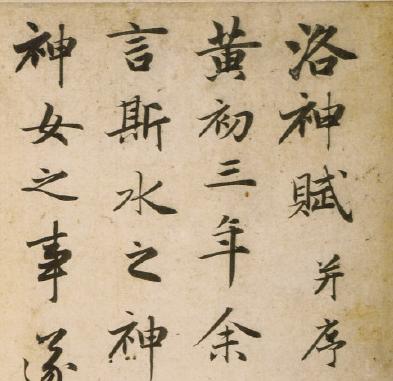 洛神賦并序
黄初三年余
言斯水之神
神女之事遂